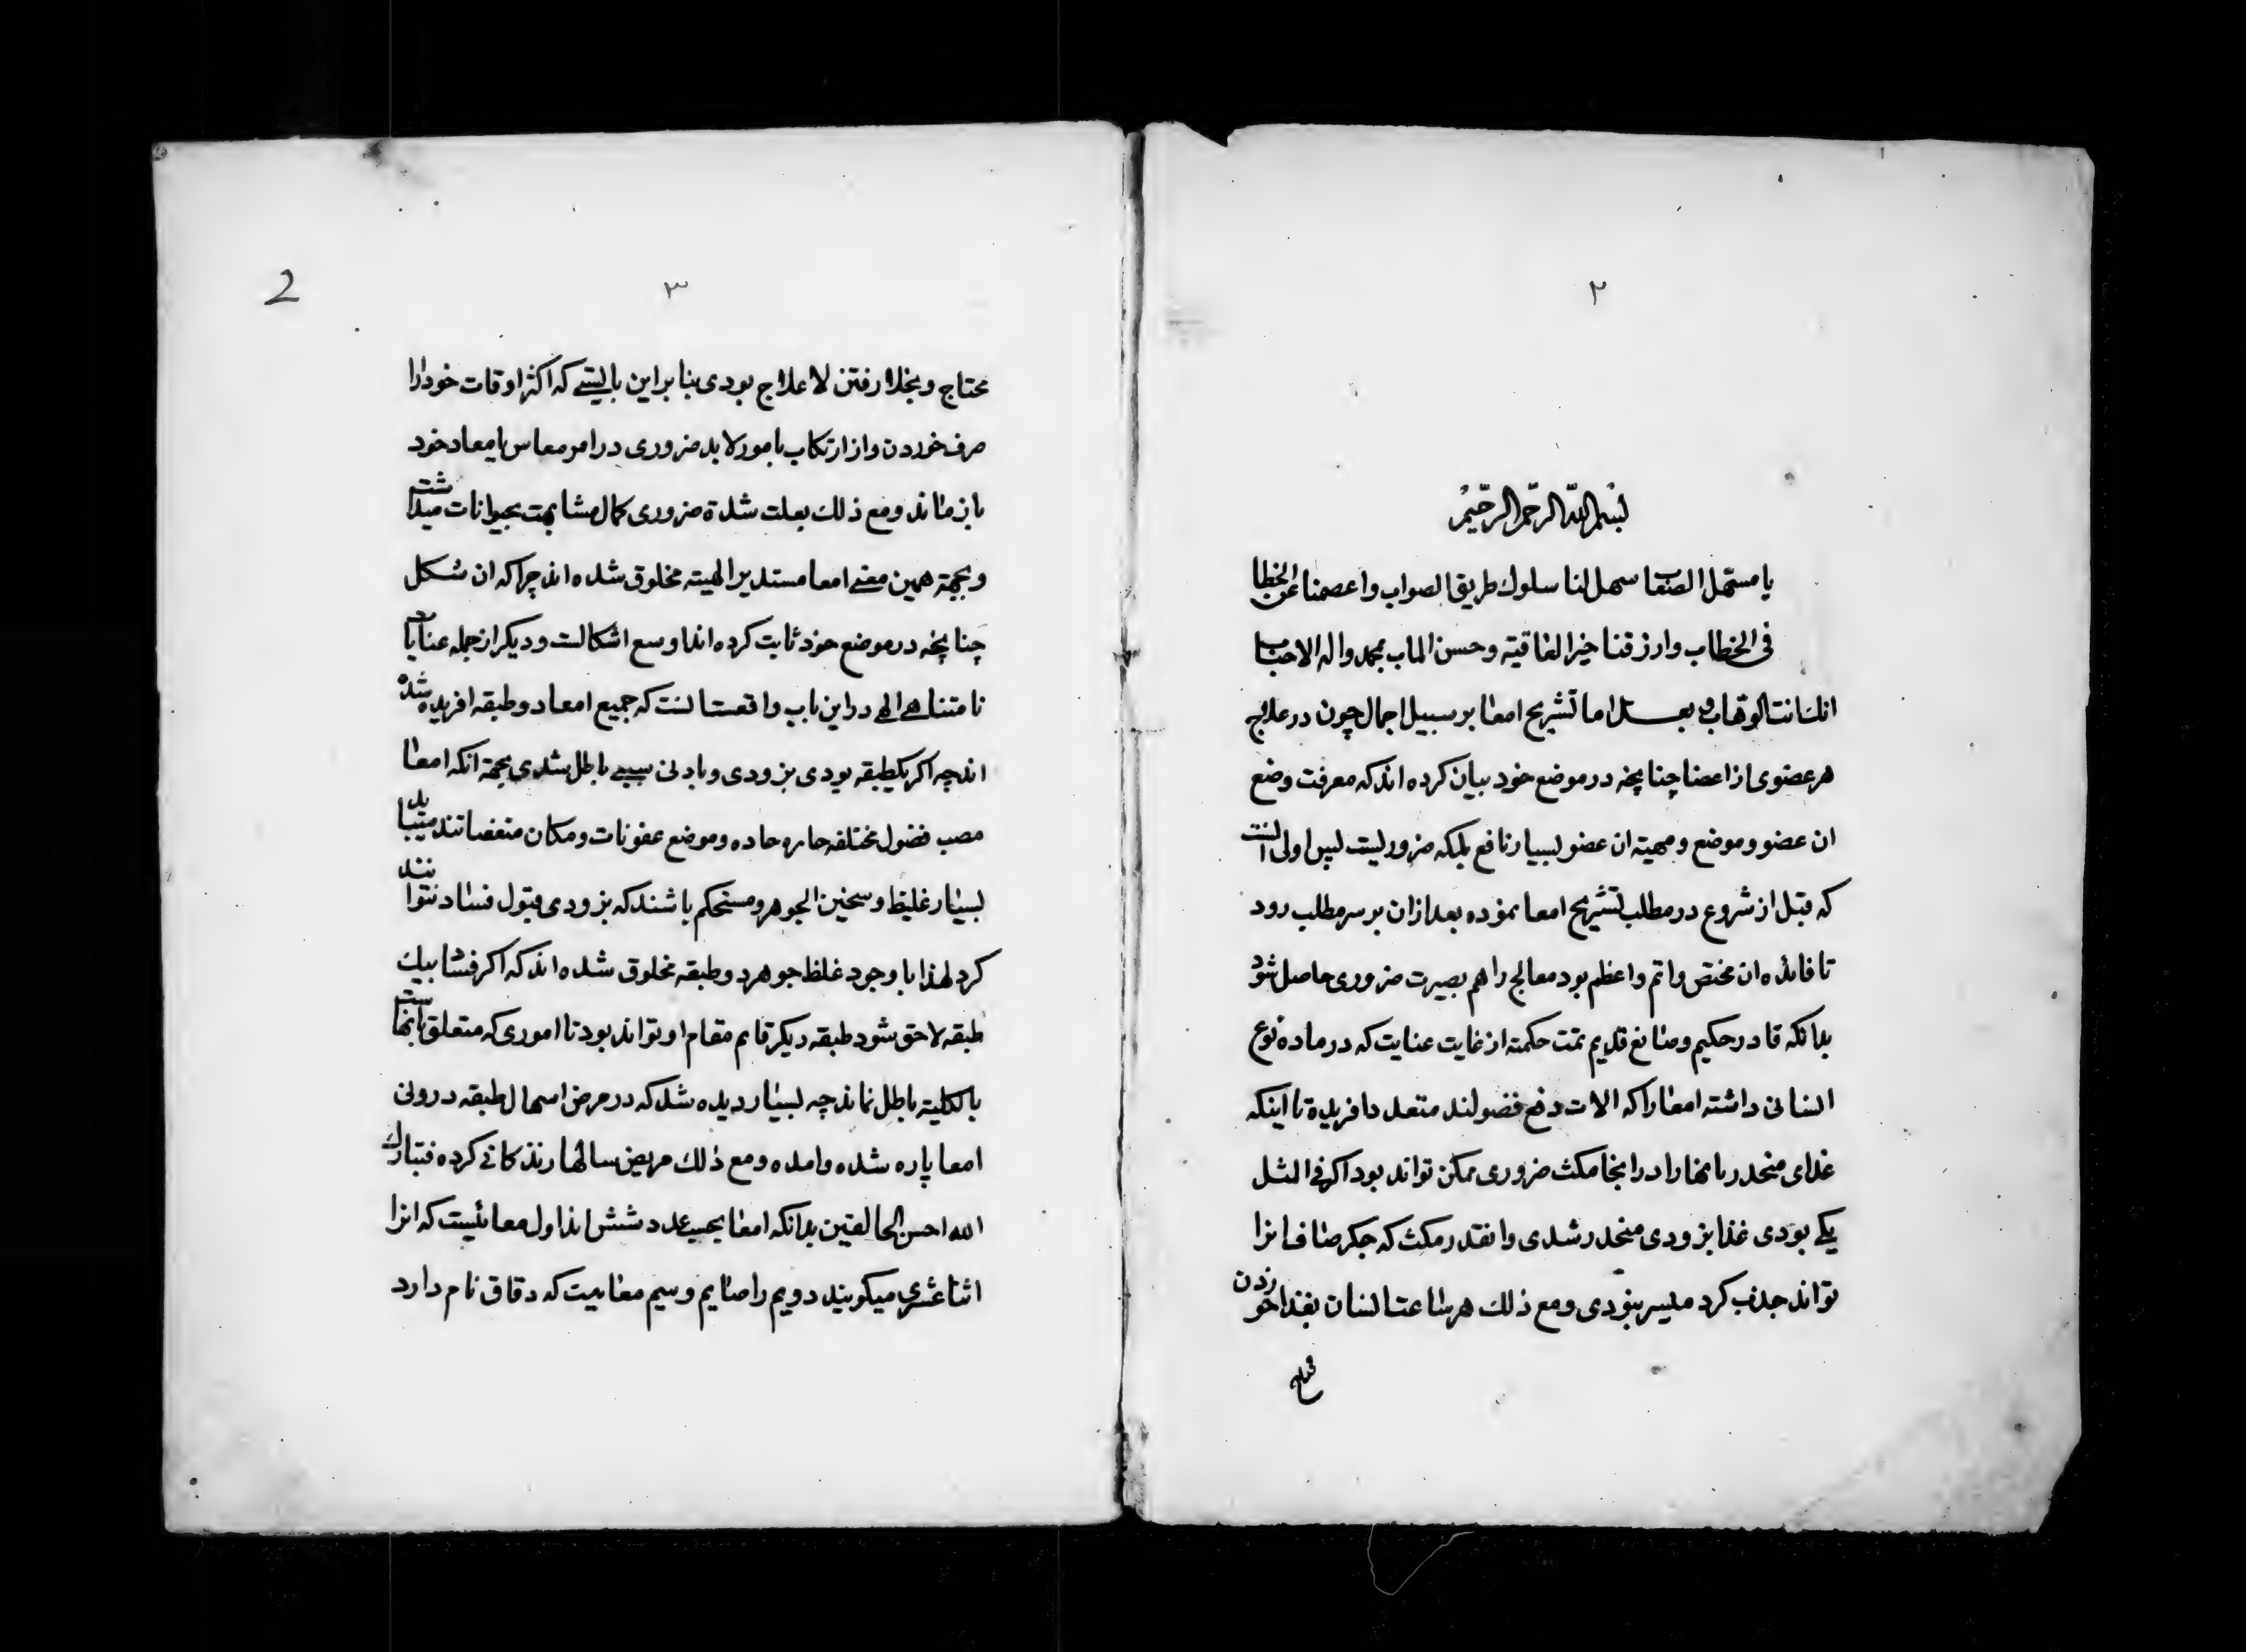 ٢
بسم الله الرحمن الرحيم
يا مسهل الصعاب سهل لنا سلوك طريق الصواب واعصمنا عن الخطا
فى الخطاب وارزقنا خير العاقبة وحسن الماب بمحمد واله الاحباب
انك انت الوهاب و بعد اما تشريح امعا بر سبيل اجمال چون در علاج
هر عضوى از اعضا چنانچه در موضع خود بيان كرده اند كه معرفت وضع
ان عضو و موضع و مهية ان عضو بسيار نافع بلكه ضروريست پس اولى انست
كه قبل از شروع در مطلب تشريح امعا نموده بعد از ان بر سر مطلب رود
تا فائده ان مختص و اتم و اعظم بود معالج را هم بصيرت ضرورى حاصل شود
بدانكه قادر حكيم و صانع قديم تمت حكمته از غايت عنايت كه در ماده نوع
انسانى داشته امعا را كه الات دفع فضولند متعدد افريده تا اينكه
غذاى منحدر بانها را در انجا مكث ضرورى ممكن تواند بود اكر فى المثل
يكى بودى غذا بزودى منحدر شدى و انقدر مكث كه جكر صاف انرا
تواند جذب كرد ميسر نبودى و مع ذلك هر ساعت انسان بغذا خوردن
محتاج
2
٣
محتاج و بخلا رفتن لا علاج بودى بنا براين بايستى كه اكثر اوقات خود را
صرف خوردن و از ارتكاب بامور لا بد ضرورى در امر معاش يا معاد خود
باز ماند و مع ذلك بعلت شدة ضرورى كمال مشابهت بحيوانات ميداشت
و بجهة همين معنى امعا مستدير الهيئه مخلوق شده اند چرا كه ان شكل
چنانچه در موضع خود ثابت كرده اند اوسع اشكالست و ديكر از جمله عنايات
نا متناهى الهى در اين باب واقعست انست كه جميع امعا دو طبقه افريده شده
اند چه اكر يكطبقه بودى بزودى و بادنى سببى باطل شدى بجهة انكه امعا
مصب فضول مختلفه حاره حاده و موضع عفونات و مكان منغصاتند ميبايد
بسيار غليظ و سخين الجوهر و مستحكم باشند كه بزودى قبول فساد نتوانند
كرد لهذا با وجود غلظ جوهر دو طبقه مخلوق شده اند كه اكر فساد بيك
طبقه لاحق شود طبقه ديكر قايم مقام او تواند بود تا امورى كه متعلق بانهاست
بالكليه باطل نماند چه بسيار ديده شد كه در مرض اسهال طبقه درونى
امعا پاره شده و امده و مع ذلك مريض سالها زندكانى كرده فتبارك
الله احسن الخالقين بدانكه امعا بحسب عدد شش اند اول معائيست كه انرا
اثنا عشرى ميكويند دويم را صايم و سيم معاييست كه دقاق نام دارد